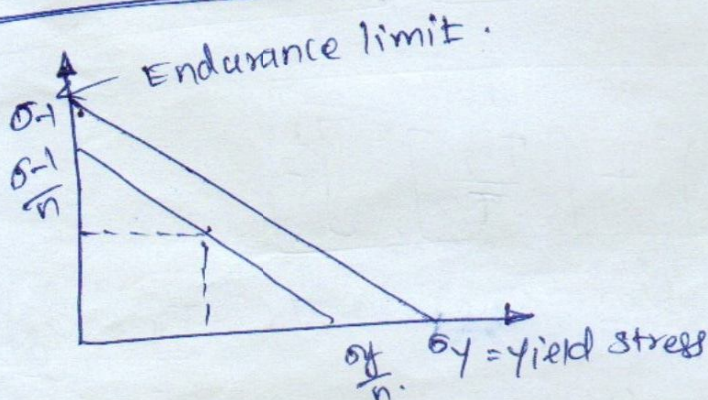 Endurance limit.
σ-1
σ-1/n
σy/n.
σy = yield stress